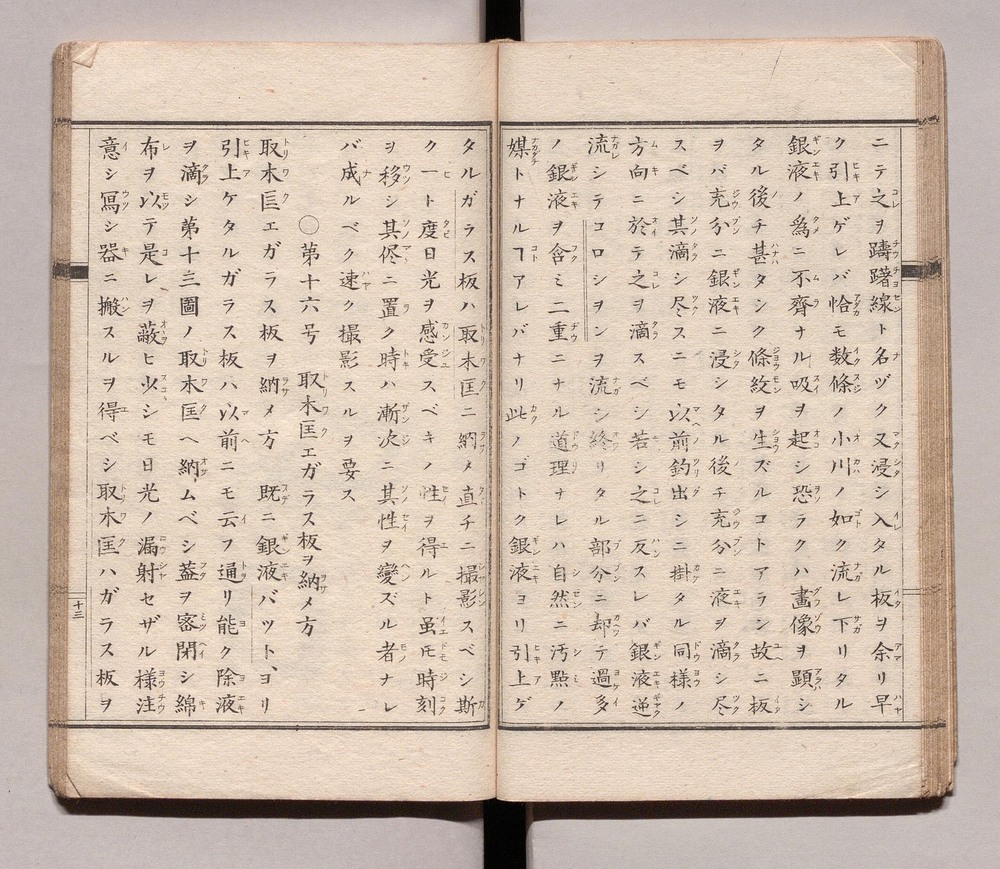 ニテ之ヲ躊躇線ト名ヅク又浸シ入タル板ヲ余リ早
ク引上ゲレバ恰モ数條ノ小川ノ如ク流レ下リタル
銀液ノ為ニ不齊ナル吸ヲ起シ恐ラクハ畫像ヲ顕シ
タル後チ甚タシク條紋ヲ生ズルコトアラン故ニ板
ヲバ充分ニ銀液ニ浸シタル後チ充分ニ液ヲ滴シ尽
スベシ其滴シ尽スニモ以前釣出シニ掛タル同様ノ
方向ニ於テ之ヲ滴スベシ若シ之ニ反スレバ銀液逆
流シテコロシヲンヲ流シ終リタル部分ニ却テ過多
ノ銀液ヲ含ミ二重ニナル道理ナレハ自然ニ汚點ノ
媒トナルヿアレバナリ此ノゴトク銀液ヨリ引上ゲ
タルガラス板ハ取木匡ニ納メ直チニ撮影スベシ斯
ク一ト度日光ヲ感受スベキノ性ヲ得ルト虽𪜈時刻
ヲ移シ其侭ニ置ク時ハ漸次ニ其性ヲ變ズル者ナレ
バ成ルベク速ク撮影スルヲ要ス
○第十六号 取木匡エガラス板ヲ納メ方
取木匡エガラス板ヲ納メ方 既ニ銀液バット、ヨリ
引上ケタルガラス板ハ以前ニモ云フ通リ能ク除液
ヲ滴シ第十三圖ノ取木匡ヘ納ムベシ葢ヲ密閉シ綿
布ヲ以テ是レヲ蔽ヒ少シモ日光ノ漏射セザル様注
意シ寫シ器ニ搬スルヲ得ベシ取木匡ハガラス板ヲ
十三